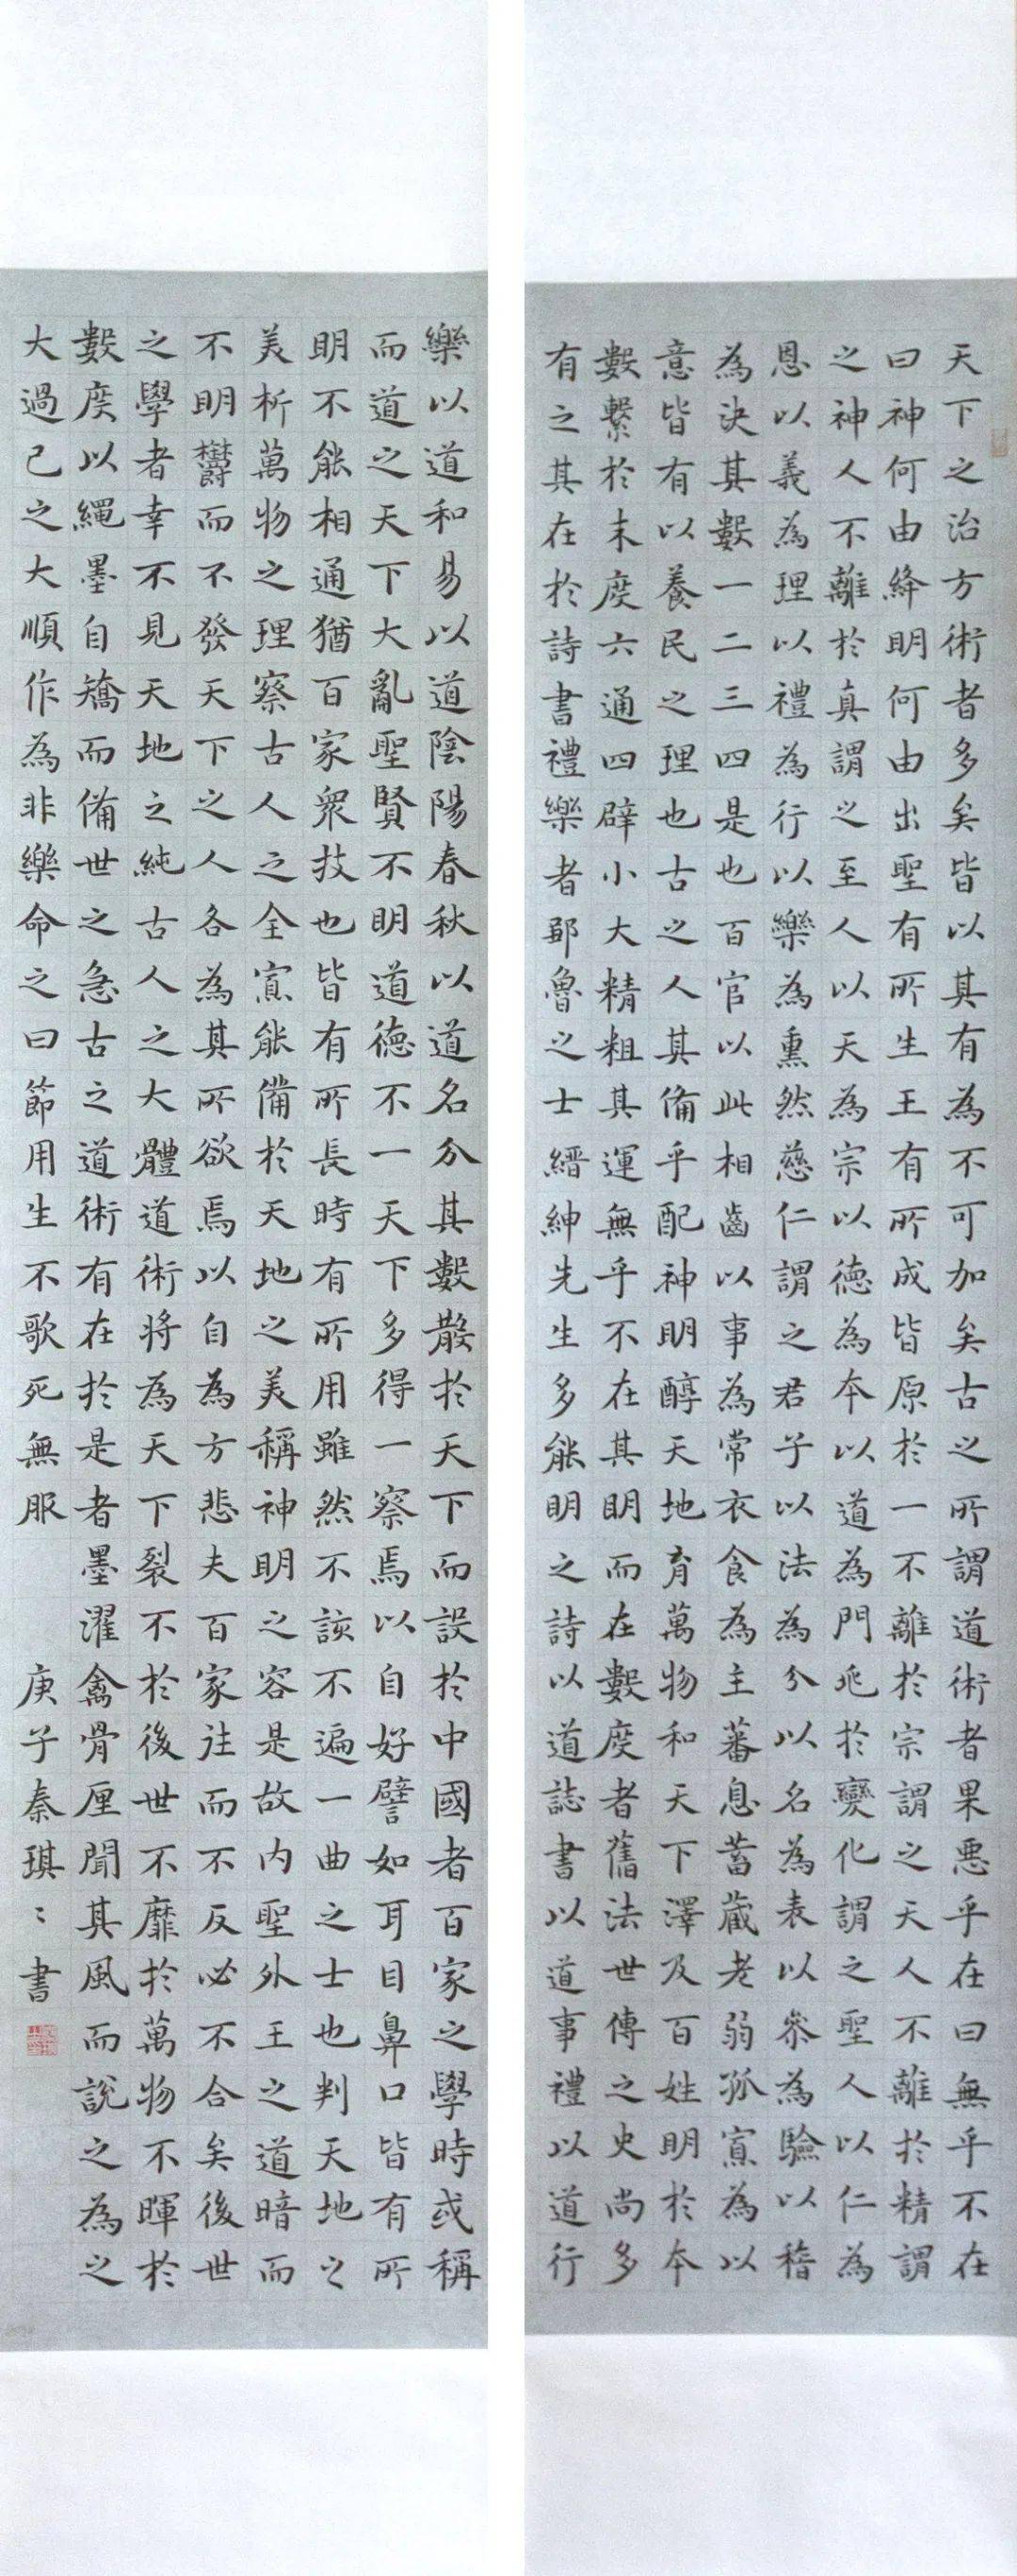 天下之治方術者多矣皆以其有為不可加矣古之所謂道術者果悪乎在曰無乎不在
曰神何由絳明何由出聖有所生王有所成皆原於一不離於宗謂之天人不離於精謂
之神人不離於真謂之至人以天為宗以德為本以道為門兆於變化謂之聖人以仁為
恩以義為理以禮為行以樂為熏然慈仁謂之君子以法為分以名為表以參為驗以稽
為決其數一二三四是也百官以此相齒以事為常衣食為主蕃息蓄藏老弱孤寡為以
意皆有以養民之理也古之人其備乎配神明醇天地育萬物和天下澤及百姓明於本
數繫於末度六通四辟小大精粗其運無乎不在其明而在數度者舊法世傳之史尚多
有之其在於詩書禮樂者鄒魯之士縉紳先生多能明之詩以道誌書以道事禮以道行
樂以道和易以道陰陽春秋以道名分其數散於天下而設於中國者百家之學時或稱
而道之天下大亂聖賢不明道德不一天下多得一察焉以自好譬如耳目鼻口皆有所
明不能相通猶百家眾技也皆有所長時有所用雖然不該不遍一曲之士也判天地之
美析萬物之理察古人之全寡能備於天地之美稱神明之容是故內聖外王之道暗而
不明鬱而不發天下之人各為其所欲焉以自為方悲夫百家往而不反必不合矣後世
之學者幸不見天地之純古人之大體道術將為天下裂不於後世不靡於萬物不暉於
數度以繩墨自矯而備世之急古之道術有在於是者墨濯禽骨厘聞其風而說之為之
大過己之大順作為非樂命之曰節用生不歌死無服 庚子秦琪〻書